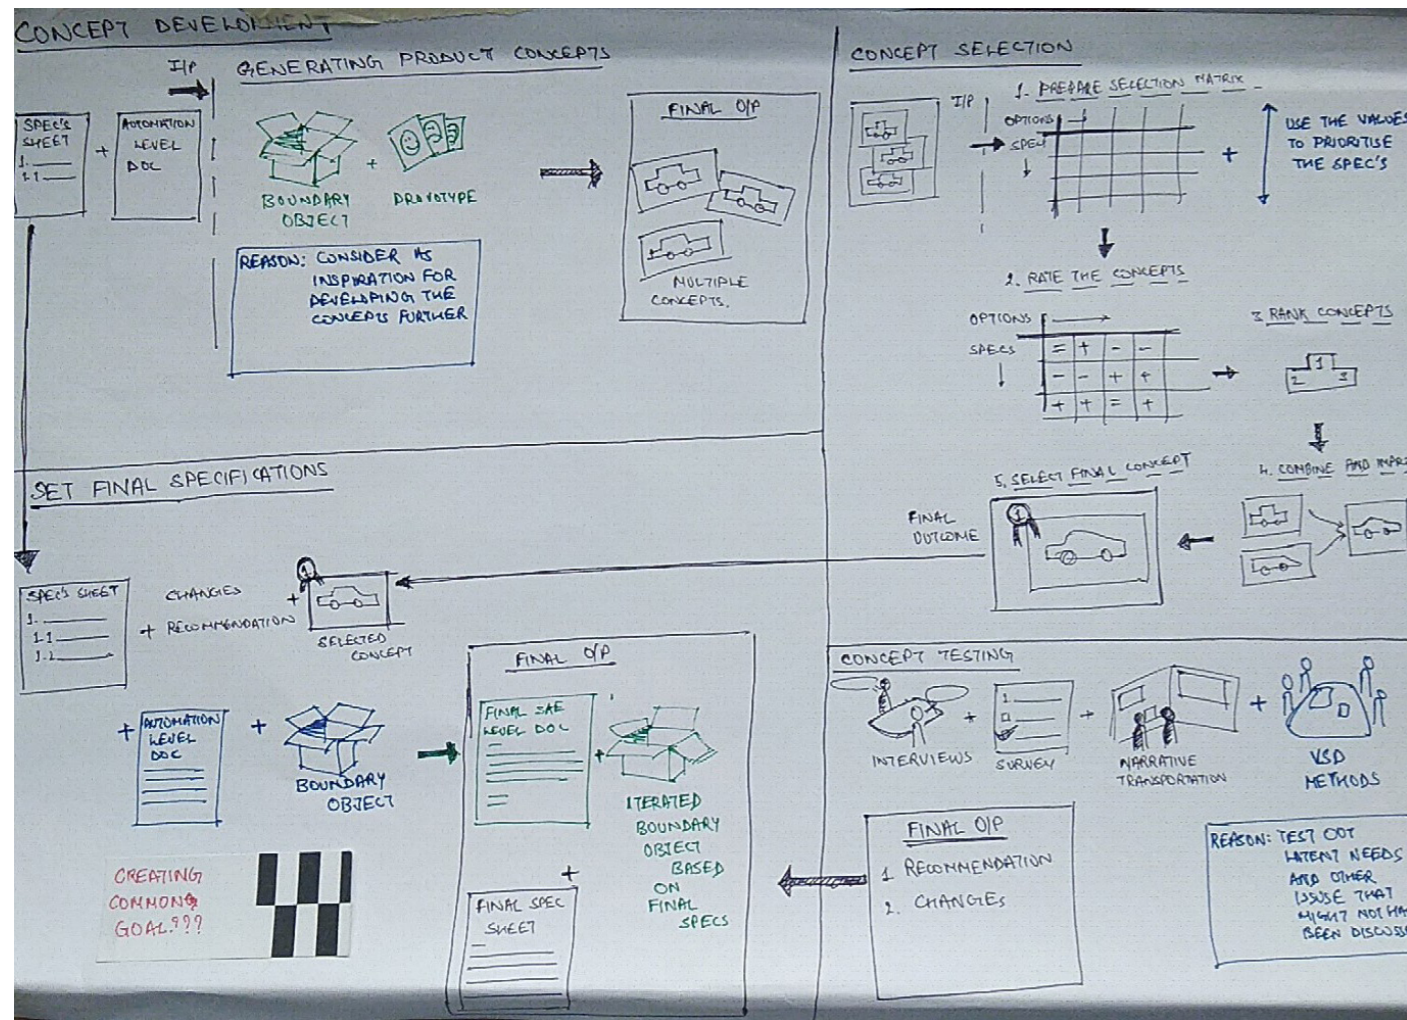 CONCEPT DEVELOPMENT
I/P
GENERATING PRODUCT CONCEPTS
SPEC'S
SHEET
1.
1.1
+
AUTOMATION
LEVEL
DOC
BOUNDARY
OBJECT
+
PROVOTYPE
REASON: CONSIDER AS
INSPIRATION FOR
DEVELOPING THE
CONCEPTS FURTHER
FINAL O/P
MULTIPLE
CONCEPTS.
CONCEPT SELECTION
I/P
1. PREPARE SELECTION MATRIX
OPTIONS
SPECS
+
USE THE VALUES
TO PRIORITISE
THE SPEC'S
2. RATE THE CONCEPTS
OPTIONS
SPECS
= + - -
- - + +
+ + = +
3. RANK CONCEPTS
1
2 3
4. COMBINE AND
5. SELECT FINAL CONCEPT
1
FINAL
OUTCOME
SET FINAL SPECIFICATIONS
SPEC'S SHEET
1.
1.1
1.2
+
CHANGES
RECOMMENDATION
+
1
SELECTED
CONCEPT
+
AUTOMATION
LEVEL
DOC
+
BOUNDARY
OBJECT
CREATING
COMMON
GOAL???
FINAL O/P
FINAL SAE
LEVEL DOC
+
ITERATED
BOUNDARY
OBJECT
BASED
ON
FINAL
SPECS
+
FINAL SPEC
SHEET
CONCEPT TESTING
INTERVIEWS
+
1
SURVEY
+
NARRATIVE
TRANSPORTATION
+
VSD
METHODS
FINAL O/P
1. RECOMMENDATION
2. CHANGES
REASON: TEST OUT
LATENT NEEDS
AND OTHER
ISSUSE THAT
MIGHT NOT
BEEN